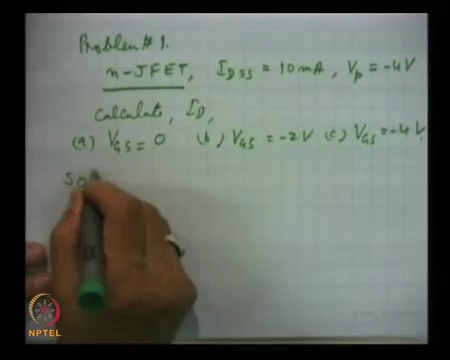 Problem # 1.
n-JFET, IDSS = 10 mA, Vp = -4V
Calculate, ID,
(a) VGS = 0 (b) VGS = -2V (c) VGS = -4V.
So
NPTEL